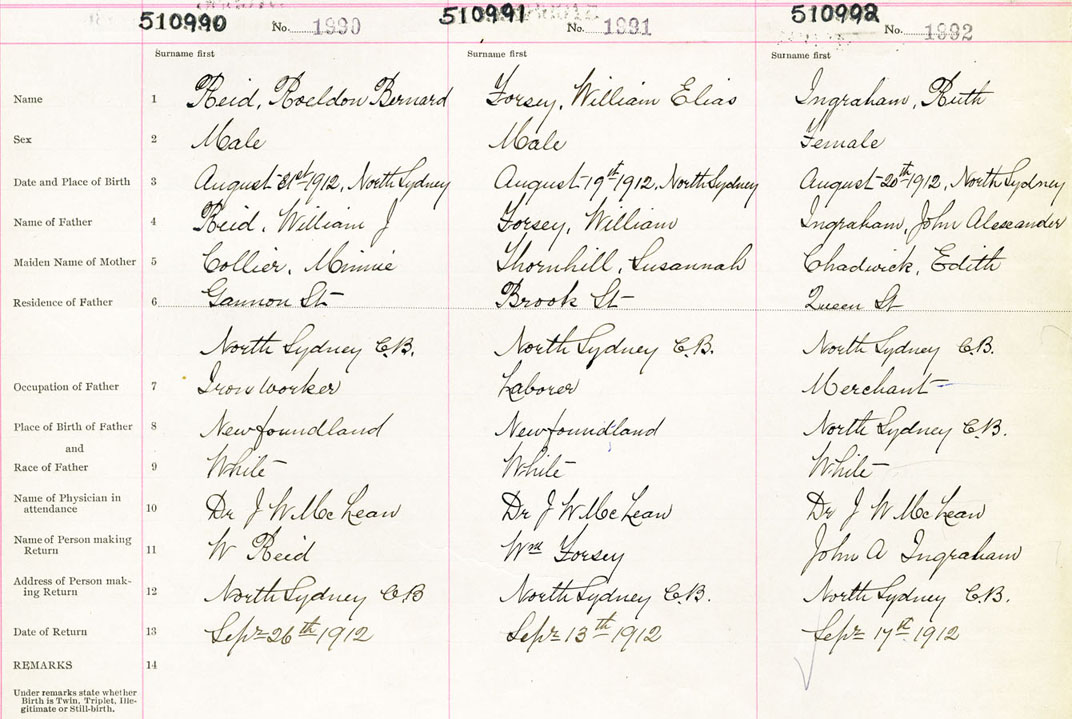 510990 No. 1990 510991 No. 1991 510992 No. 1992
Surname first Surname first Surname first
Name 1 Reid, Roeldon Bernard Forsey, William Elias Ingraham, Ruth
Sex 2 Male Male Female
Date and Place of Birth 3 August 31st 1912, North Sydney August 19th 1912, North Sydney August 20th 1912, North Sydney
Name of Father 4 Reid, William J Forsey, William Ingraham, John Alexander
Maiden Name of Mother 5 Collier, Minnie Thornhill, Susannah Chadwick, Edith
Residence of Father 6 Gannon St Brook St Queen St
North Sydney C.B. North Sydney C.B. North Sydney C.B.
Occupation of Father 7 Iron worker Laborer Merchant
Place of Birth of Father 8 Newfoundland Newfoundland North Sydney C.B.
and
Race of Father 9 White White White
Name of Physician in
attendance 10 Dr J W McLean Dr J W McLean Dr J W McLean
Name of Person making
Return 11 W Reid Wm Forsey John A Ingraham
Address of Person mak-
ing Return 12 North Sydney C B North Sydney C.B. North Sydney C.B.
Date of Return 13 Sept 26th 1912 Sept 13th 1912 Sept 17th 1912
REMARKS 14
Under remarks state whether
Birth is Twin, Triplet, Ille-
gitimate or Still-birth.